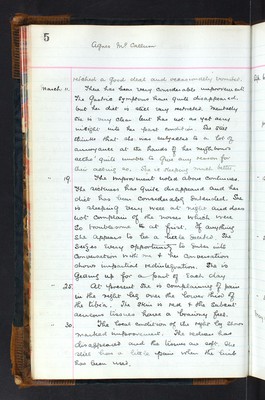 5
Agnes Mc Callum
retched a good deal and occasionally vomited.
March 11. There has been very considerable improvement.
The Gastric symptoms have quite disappeared,
but her diet is still very restricted. Mentally
she is very clear but has not as yet any
insight into her past condition. She still
thinks that she was subjected to a lot of
annoyance at the hands of her neighbours
altho' quite unable to give any reason for
their acting so. She is sleeping much better.
" 19. The improvement noted above continues.
The sickness has quite disappeared and her
diet has been considerably extended. She
is sleeping very well at night and does
not complain of the noises which were
so troublesome at first. If anything
she appears to be a little exalted. She
seizes every opportunity to enter into
conversation with me & her conversation
shows impartial
She is
getting up for a part of each day.
" 25. At present she is complaining of pain
in the right leg over the lower third of
the tibia. The skin is red & the subcut
aneous tissues have a brawny feel.
" 30. The local condition of the right leg shows
marked improvement. The redness has
disappeared and the tissues are soft. She
still has a little pain when the limb
has been used.